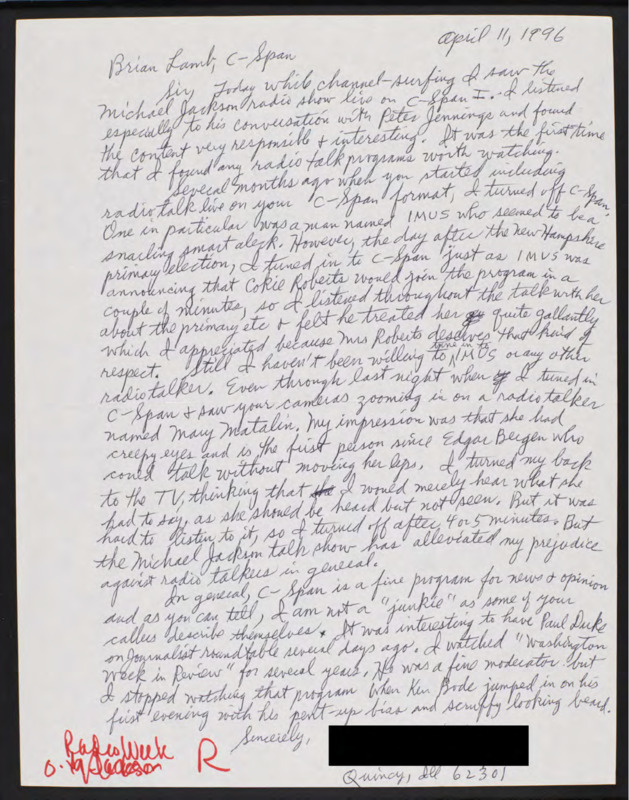 April 11, 1996
Brian Lamb, C-Span
Sir, Today while channel-surfing I saw the
Michael Jackson radio show live on C-Span I. I listened
especially to his conversation with Peter Jennings and found
the content very responsible & interesting. It was the first time
that I found any radio talk programs worth watching.
Several months ago when you started including
radio talk live on your C-Span format, I turned off C-Span.
One in particular was a man named IMUS who seemed to be a
snarling smart aleck. However, the day after the New Hampshire
primary election, I tuned in to C-Span just as IMUS was
announcing that Cokie Roberts would join the program in a
couple of minutes, so I listened throughout the talk with her
about the primary etc & felt he treated her quite gallantly
which I appreciated because Mrs Roberts deserves that kind of
respect. Still I haven't been willing to tune in to IMUS or any other
radio talker. Even through last night when I tuned in
C-Span & saw your cameras zooming in on a radio talker
named Mary Matalin. My impression was that she had
creepy eyes and is the first person since Edgar Bergen who
could talk without moving her lips. I turned my back
to the TV, thinking that I would merely hear what she
had to say, as she should be heard but not seen. But it was
hard to listen to it, so I turned off after 4 or 5 minutes. But
the Michael Jackson talk show has alleviated my prejudice
against radio talkers in general.
In general, C-Span is a fine program for news & opinion
and as you can tell, I am not a "junkie" as some of your
callers describe themselves. It was interesting to have Paul Duke
on Journalist roundtable several days ago. I watched "Washington
Week in Review" for several years. He was a fine moderator but
I stopped watching that program when Ken Bode jumped in on his
first evening with his pent-up bias and scruffy looking beard.
Sincerely,
Quincy, Ill 62301
Radio Week
Jackson
R